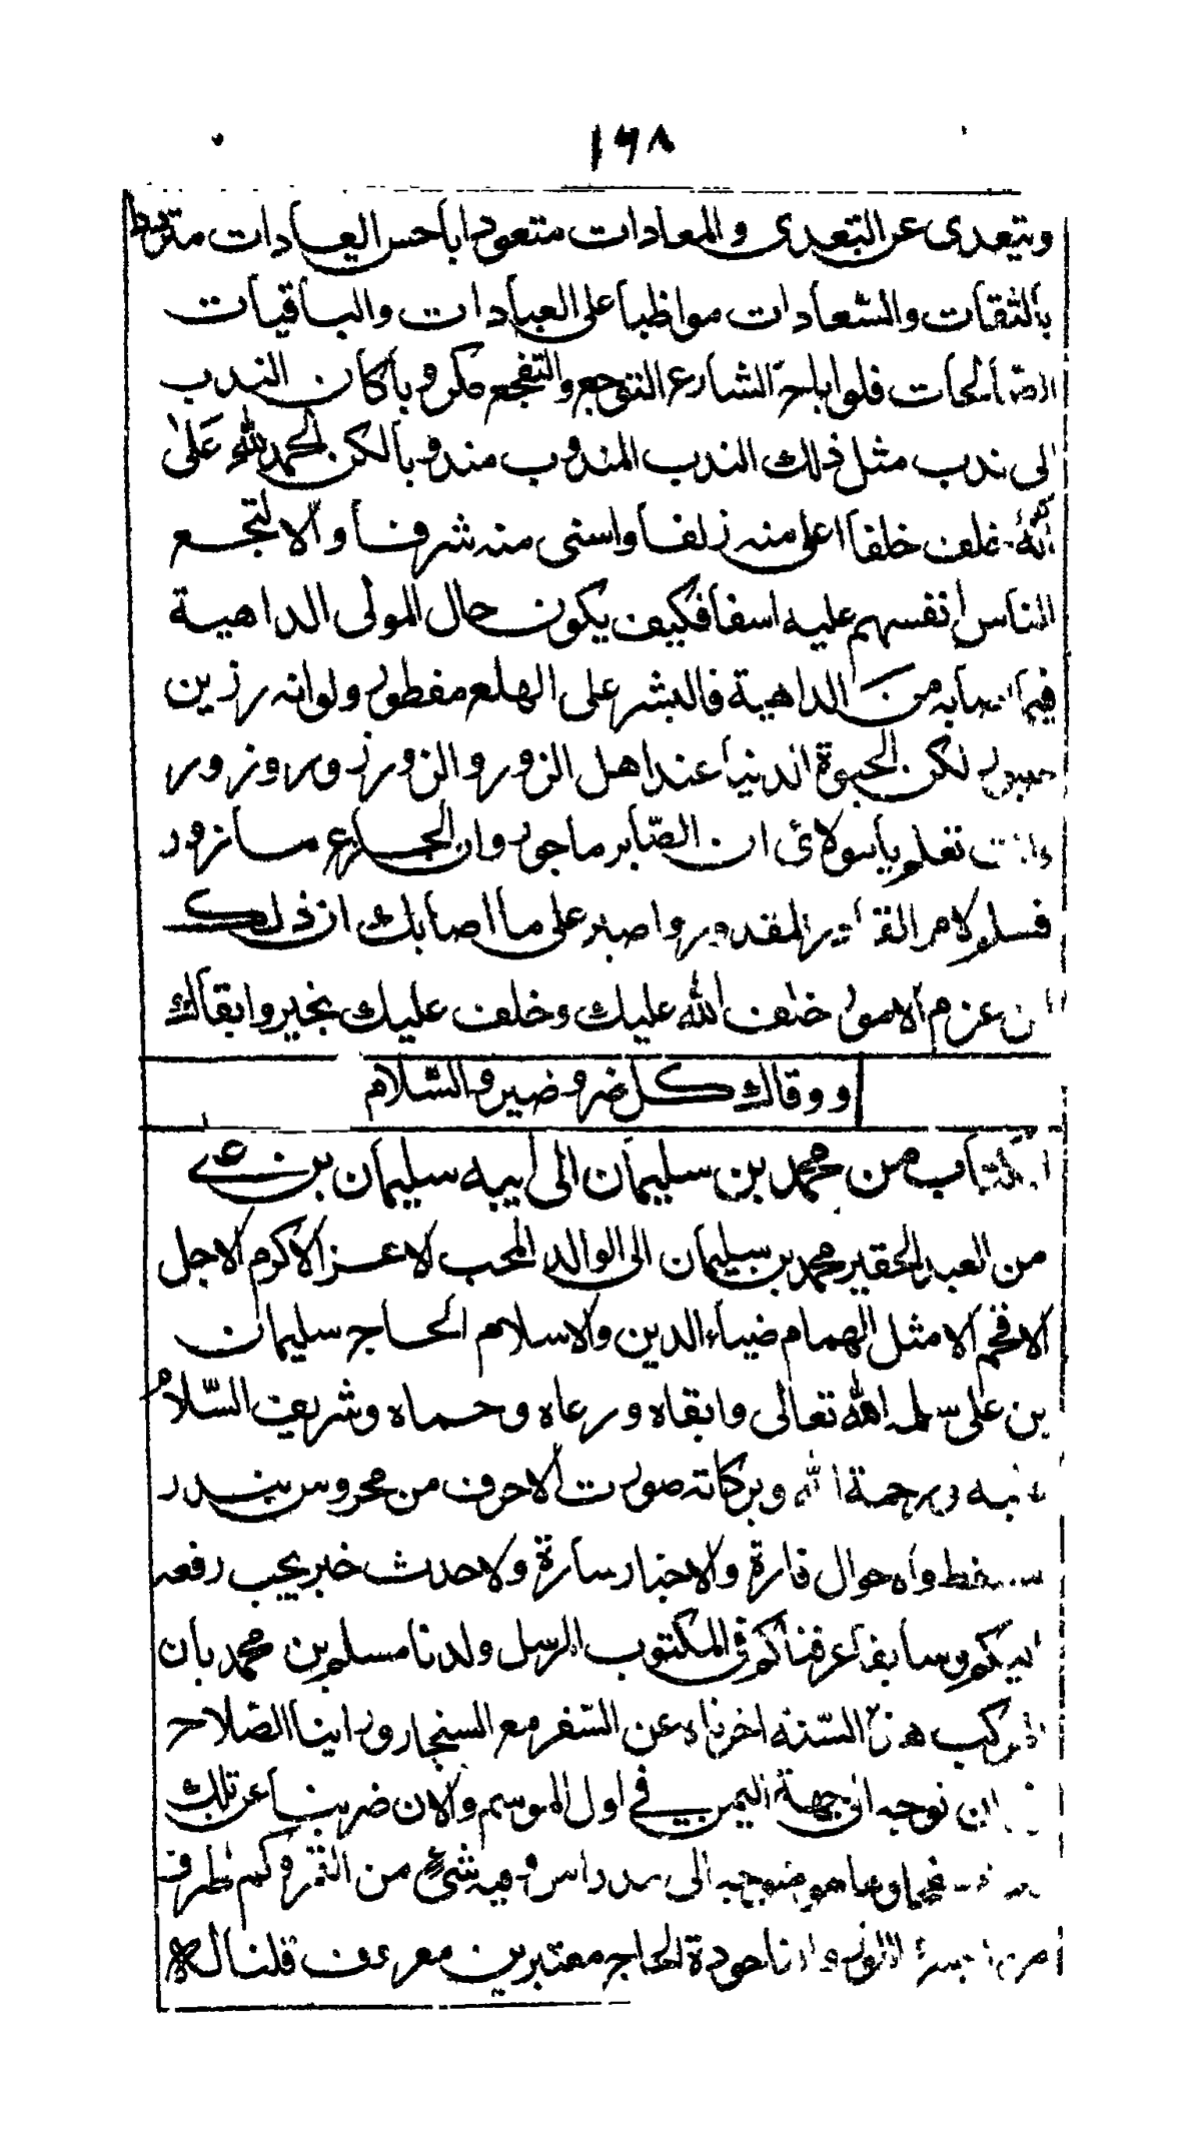 ١٦٨
ويتعدى عن التعدى والمعادات متعودا باحسن العادات
بالثقات والسعادات مواظبا على العبادات والباقيات
الصالحات فلو اباح الشارع التوجع والتفجع مكروبا كان الندب
الى ندب مثل ذلك الندب المندوب مندوبا لكن الحمد لله على
انه خلف خلفا اعلى منه زلفا واسنى منه شرفا والا لتجع
الناس انفسهم عليه اسفا فكيف يكون حال المولى الداهية
فيما من الداهية فالبشر على الهلع مفطور ولو انه رزين
صبور لكن الحيوة الدنيا عند اهل الزور والزور زور وزور
وانت تعلم يا مولائ ان الصّابر ماجور وان الجازع مازور
فسلم لامر المقدور واصبر على ما اصابك ان ذلك
من عزم الامور خلف الله عليك وخلف عليك بخير وابقاك
ووقاك كل ضر وضير والسّلام
الكتاب من محمد بن سليمان الى ابيه سليمان بن على
من العبد الحقير محمد بن سليمان الى الوالد المحب الاعز الاكرم الاجل
الافخم الامثل الهمام ضياء الدين والاسلام الحاج سليمان
بن على سلمه الله تعالى وابقاه ورعاه وحماه وشريف السّلام
عليه ورحمة الله وبركاته صدرت الاحرف من محروس بندر
مسقط والاحوال قارة والاخبار سارة ولا حدث خبر يجب رفعه
اليكم وسابقا عرفناكم فى المكتوب المرسل ولدنا مسلم بن محمد بان
المركب هذه السّنة اخرناه عن السّفر مع السنجار وراينا الصّلاح
ان نوجه الى جهة اليمن في اول الموسم والان ضربنا عن تلك
هو متوجه الى وفيه شئ من التمر وكم طرف
معتبرين معروف قلنا له